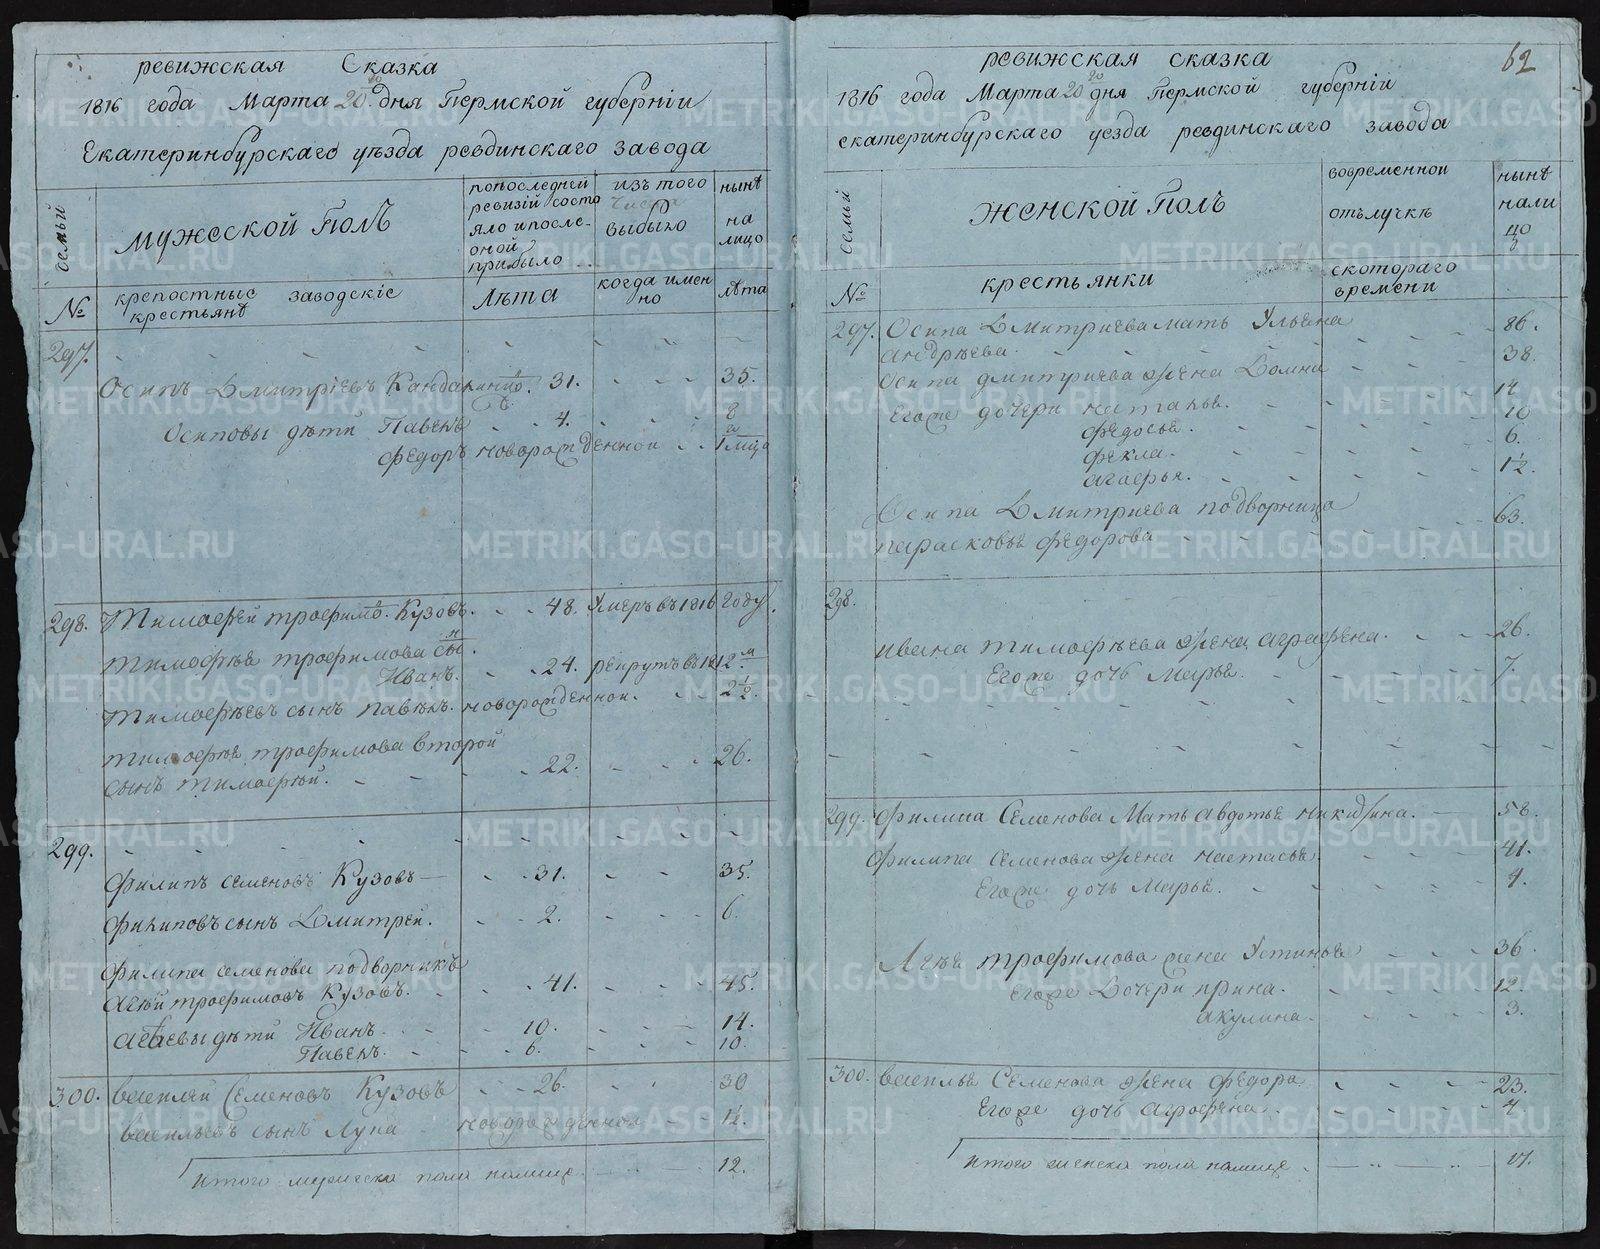 ревижская Сказка
1816 года Марта 20 го дня Пермской губерніи
Екатеринбургскаго уѣзда ревдинскаго завода
семьи
Мужеской Полъ
попоследней ревизіи состо яло ипосле- оной прибыло
изъ того числа выбыло
нынѣ на лицо
№
крепостные заводскіе
крестьянѣ
Лѣта
когда имен но
лѣта
297.
Осипъ Дмитріевъ 31. 35.
Осиповы дѣти Павелъ 4. 8
Федоръ новорожденной 1 мца
298. Тимофей трофимо. Кузовъ. 48. Умеръ въ 1816 году.
тимофѣя трофимова сы н.
Иванъ. 24. рекрутъ въ 1812 м
Тимофѣевъ сынъ павелъ. новорожденной. 2 1/2.
тимофѣя трофимова второй
сынъ тимофѣй. 22. 26.
299.
Филипъ семеновъ Кузовъ 31. 35.
Филиповъ сынъ Дмитрей. 2. 6.
Филипа семенова подворникъ
Агѣй трофимовъ Кузовъ. 41. 45.
Агѣевы дѣти Иванъ. 10. 14.
Павелъ. 6. 10.
300. василей Семеновъ Кузовъ 26. 30
васильевъ сынъ Лука новорожденной 1/2.
итого мужеска пола налице 12.
62
ревижская сказка
1816 года Марта 20 го дня Пермской губерніи
екатеринбургскаго уезда ревдинскаго завода
семьи
Женской Полъ
вовременной
отълучкѣ
нынѣ
нали
цо
№
крестьянки
скотораго
времени
297. Осипа Дмитриева мать Ульяна 86.
андрѣева.
Осипа дмитриева жена Домна 38.
Егоже дочери наталья. 14
федосья. 10
фекла. 6.
агафья. 1 1/2.
Осипа Дмитриева подворница
парасковья федорова 63.
298.
ивана тимофѣева жена аграфена. 26.
Егоже дочь Марья. 7.
299. Филипа Семенова Мать авдотья 58.
филипа семенова жена настасья. 41.
Егоже дочь Марья. 4.
Агѣя трофимова жена Устинья 36.
Егоже Дочери ирина. 12.
акулина. 3.
300. василья Семенова жена федора 23.
Егоже дочь аграфена. 4
итого женска пола налице 17.
METRIKI.GASO-URAL.RU